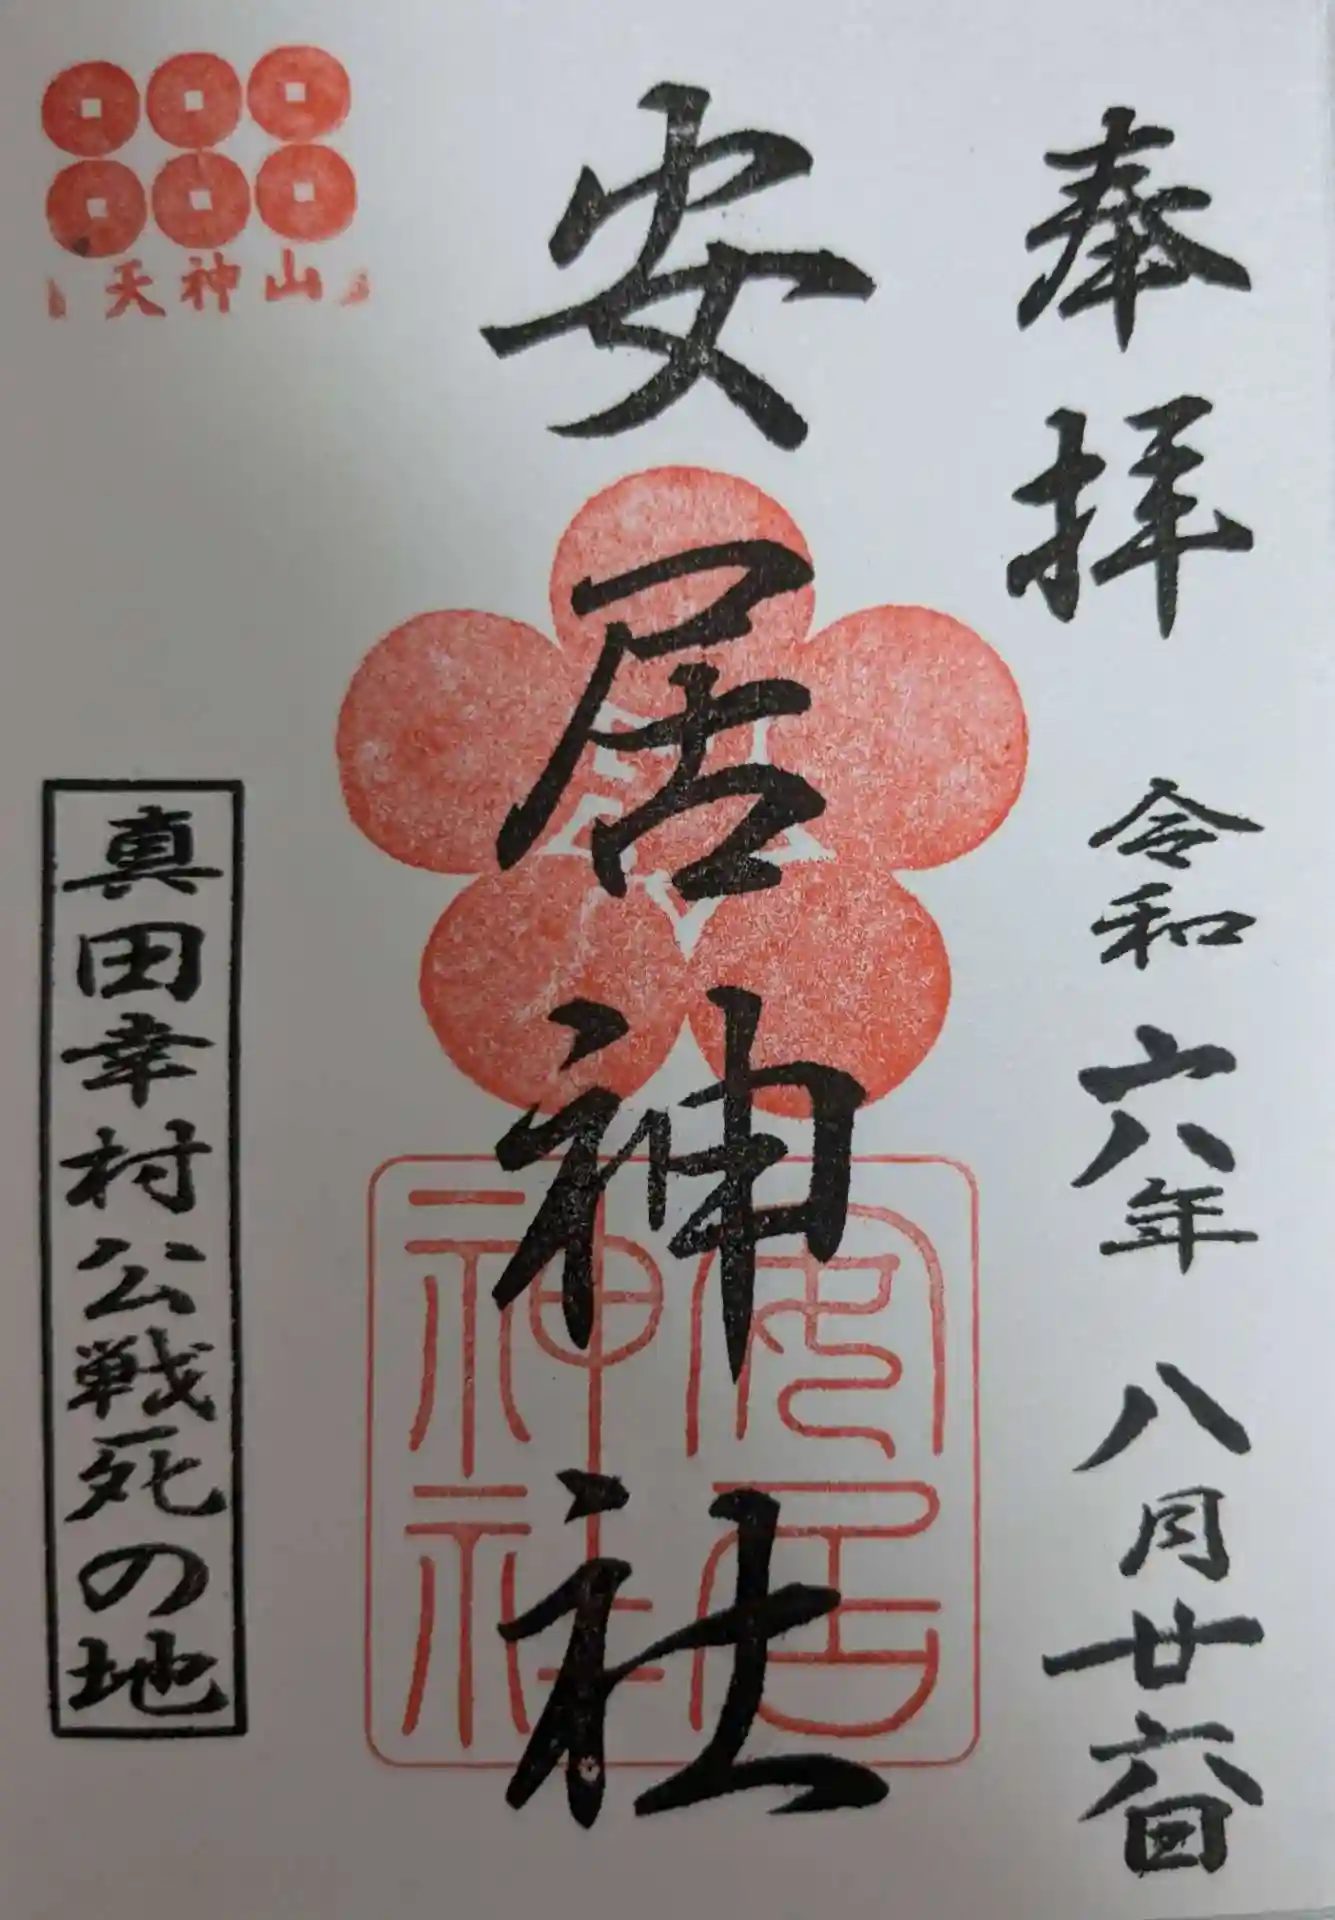 奉拝 令和六年八月廿六日
安居神社
安居
神社
天神山
真田幸村公戦死の地